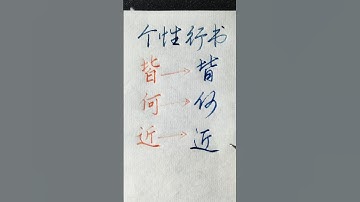 个性行书
皆→皆
何→何
近→近